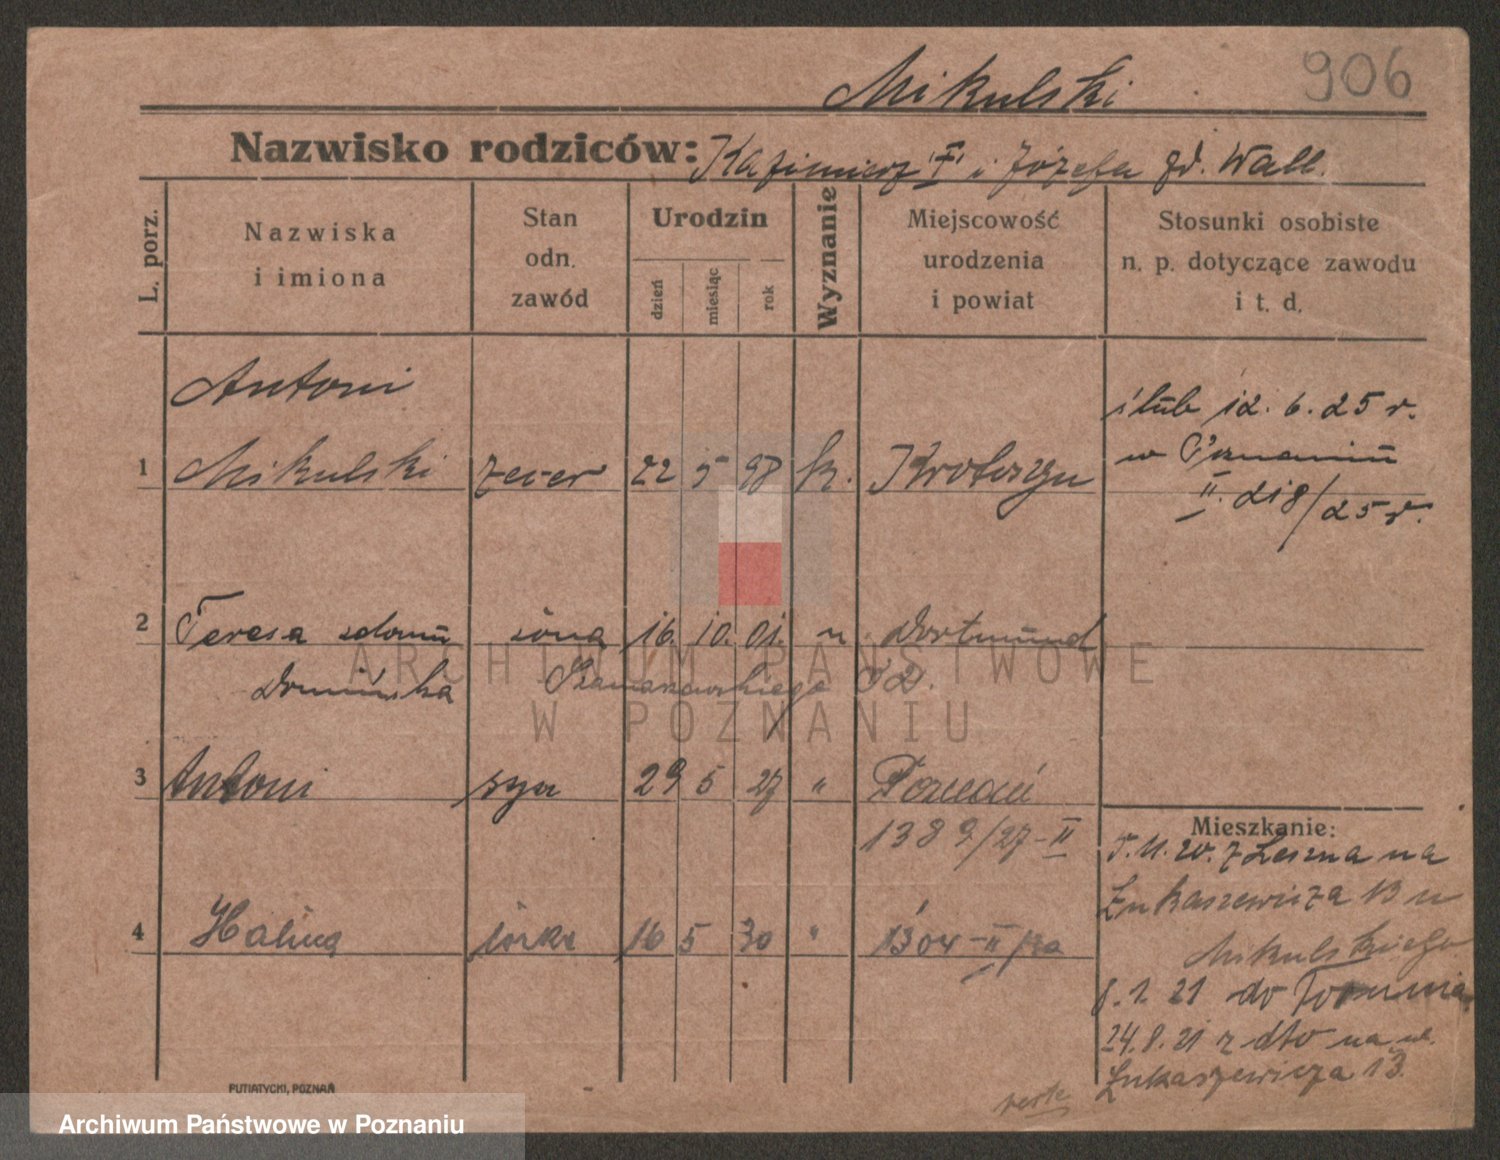 Mikulski 906
Nazwisko rodziców: Kazimierz i Józefa zd. Wall.
L. porz.
Nazwiska
i imiona
Stan
odn.
zawód
Urodzin
dzień
miesiąc
rok
Wyznanie
Miejscowość
urodzenia
i powiat
Stosunki osobiste
n. p. dotyczące zawodu
i t. d.
Antoni
1 Mikulski zecer 22 5 98 k. Krotoszyn
ślub 12. 6. 25 r.
w Poznaniu
II. 218/25 r.
2 Teresa zdomu żona 16. 10. 01. " Dortmund
Domińska
3 Antoni syn 29 5 27 " Poznań
1389/27-II
4 Halina córka 16 5 30 " 1304-II
Mieszkanie:
5.11.20. z Leszna na
Łukaszewicza 13 u
Mikulskiego
8.1.21 do Torunia
24.8.21 z dto na ul.
Łukaszewicza 13.
PUTIATYCKI, POZNAŃ
ARCHIWUM PAŃSTWOWE
W POZNANIU
Archiwum Państwowe w Poznaniu